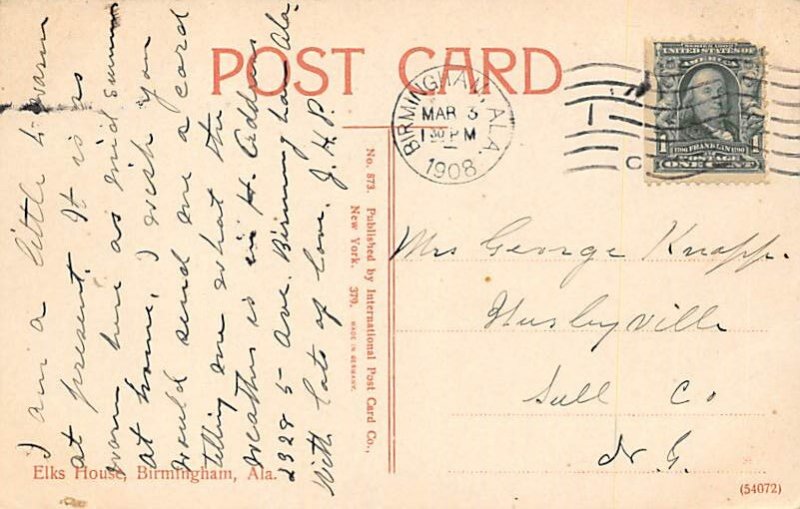 POST CARD
BIRMINGHAM, ALA.
MAR 3
1 30 PM
1908
SERIES 1902
UNITED STATES OF
AMERICA
1790 FRANKLIN 1790
POSTAGE
1 ONE CENT 1
I am a little to warm
at present. It is as
warm here as mid summer
at home, I wish you
would send me a card
telling me what the
weather is in H. Address
2328 5 Ave. Birmingham Ala.
With Lots of Love. J. H. P.
No. 873. Published by International Post Card Co.,
New York. 379. MADE IN GERMANY.
Mrs George Knapp.
Co
Elks House, Birmingham, Ala.
(54072)